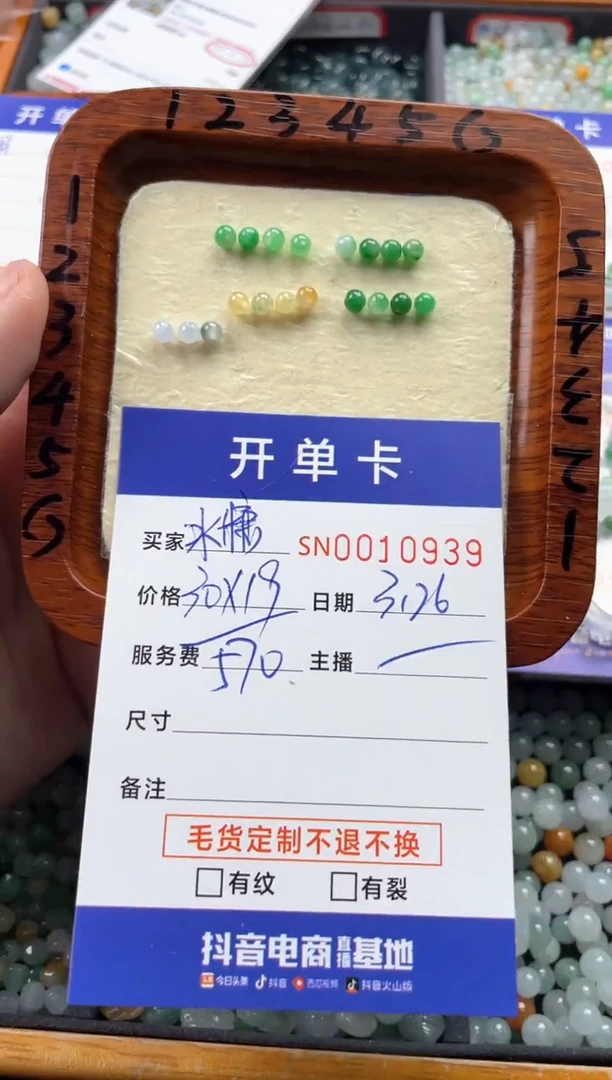 1 2 3 4 5 6
1
2
3
4
5
6
5
4
3
2
1
开单
卡
开单卡
买家 水慷 SN0010939
价格 30X19 日期 3.26
服务费 570 主播
尺寸
备注
毛货定制不退不换
有纹 有裂
抖音电商直播基地
今日头条 抖音 西瓜视频 抖音火山版